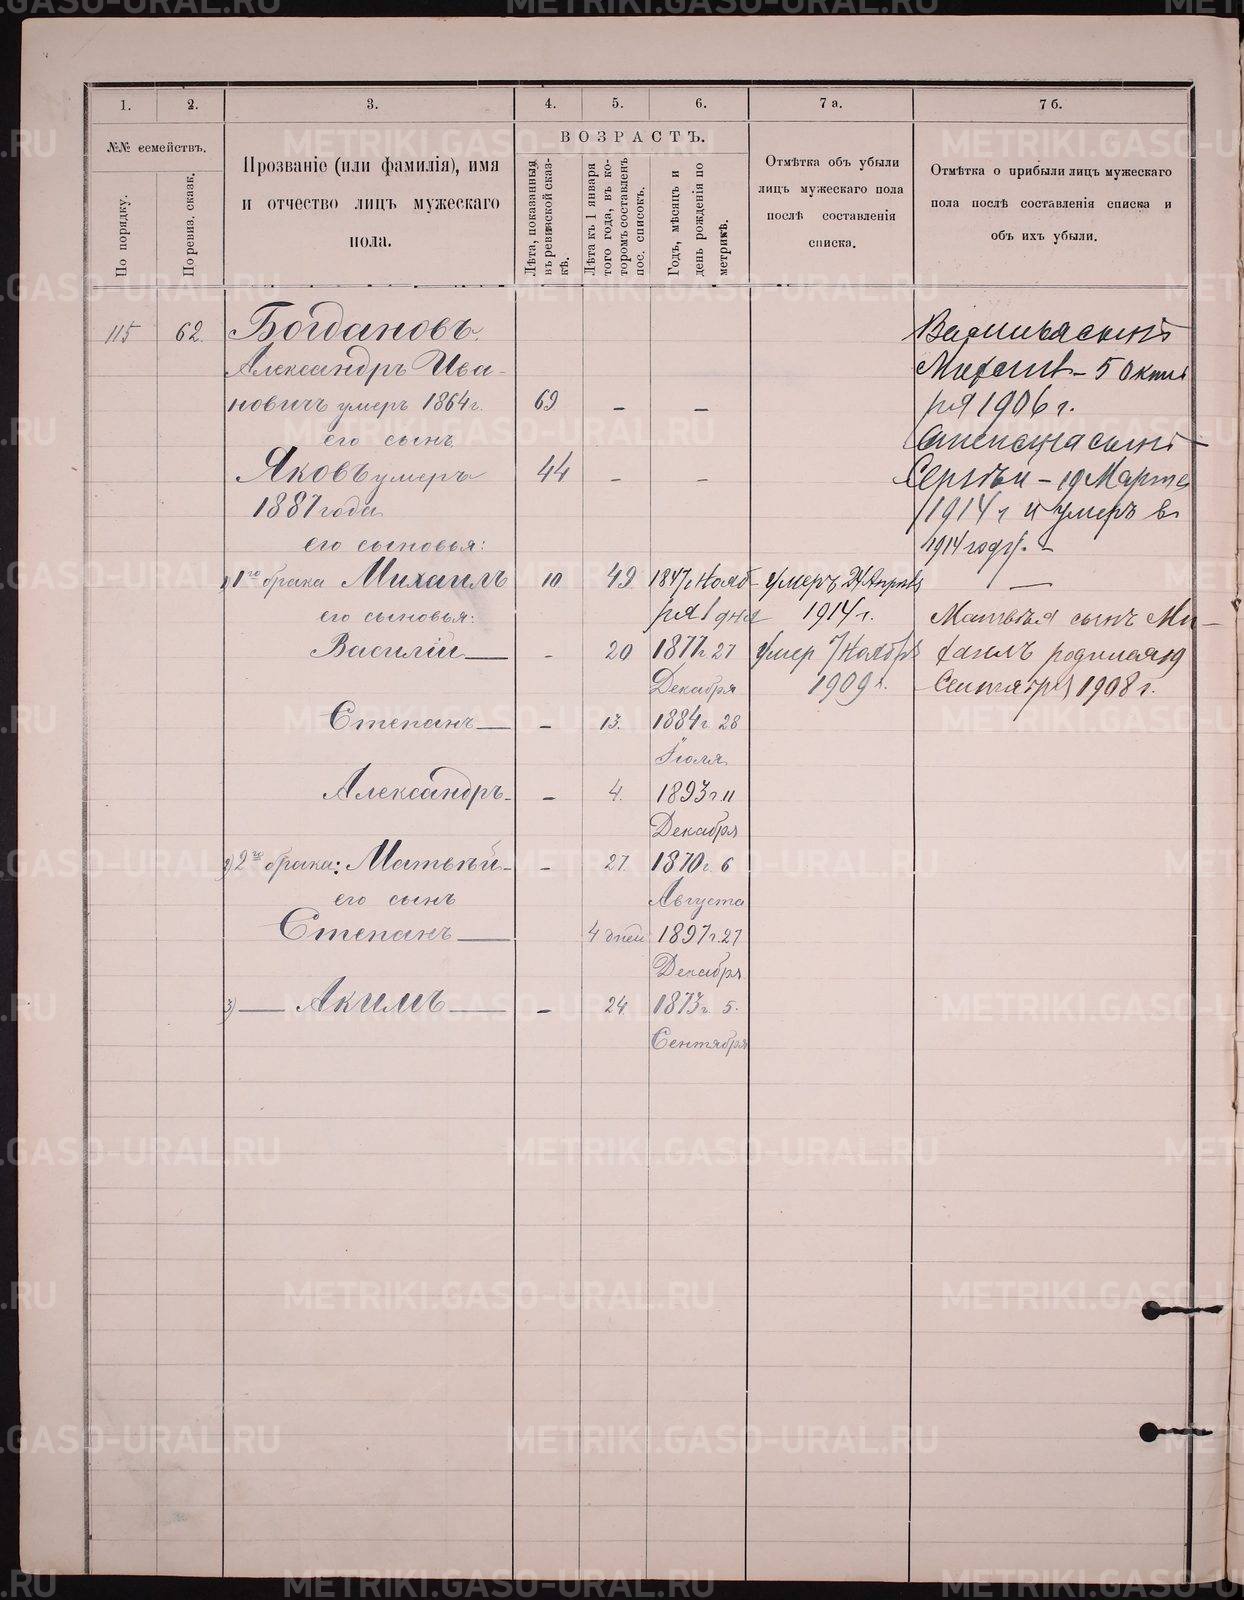 1. 2. 3. 4. 5. 6. 7 а. 7 б.
№№ семействъ.
По порядку.
По ревиз. сказк.
Прозваніе (или фамилія), имя
и отчество лицъ мужескаго
пола.
ВОЗРАСТЪ.
Лѣта, показанныя
въ ревизской сказ-
кѣ.
Лѣта къ 1 января
того года, въ ко-
торомъ составленъ
пос. списокъ.
Годъ, мѣсяцъ и
день рожденія по
метрикѣ.
Отмѣтка объ убыли
лицъ мужескаго пола
послѣ составленія
списка.
Отмѣтка о прибыли лицъ мужескаго
пола послѣ составленія списка и
объ ихъ убыли.
115 62. Богдановъ
Александръ Ива-
новичъ умеръ 1864 г. 69 – –
его сынъ
Яковъ умеръ 44 – –
1887 года
его сыновья:
1) 1го брака Михаилъ 10 49 1847 г. Нояб- умеръ 24 Апрѣля
ря 1 дня 1914 г.
его сыновья:
Василій – 20 1877 г. 27 умер 7 Ноября
Декабря 1909 г.
Степанъ – 13. 1884 г. 28
Іюля
Александръ – 4. 1893 г. 11
Декабря
2) 2го брака: Матвѣй – 27. 1870 г. 6
Августа
его сынъ
Степанъ 4 дней 1897 г. 27
Декабря
3) Акимъ – 24. 1873 г. 5.
Сентября
Василья сынъ
– 5 Октяб
ря 1906 г.
Степана сынъ
Сергѣй – 19 Марта
1914 г и умеръ в
1914 году. –
Матвѣя сынъ Ми-
хаилъ родился 9
Сентября 1908 г.
METRIKI.GASO-URAL.RU